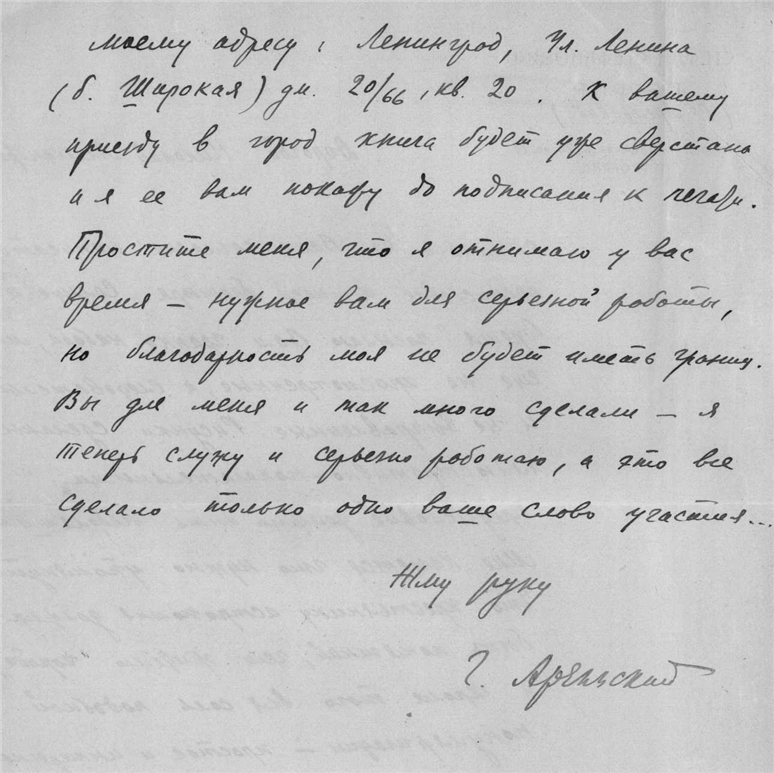 моему адресу: Ленинград, Ул. Ленина
(б. Широкая) дм. 20/66, кв. 20. К вашему
приезду в город книга будет уже сверстана
и я ее вам покажу до подписания к печати.
Простите меня, что я отнимаю у вас
время — нужное вам для серьезной работы,
но благодарность моя не будет иметь границ.
Вы для меня и так много сделали — я
теперь служу и серьезно работаю, а это все
сделало только одно ваше слово участия...
Жму руку
Г. Арельский